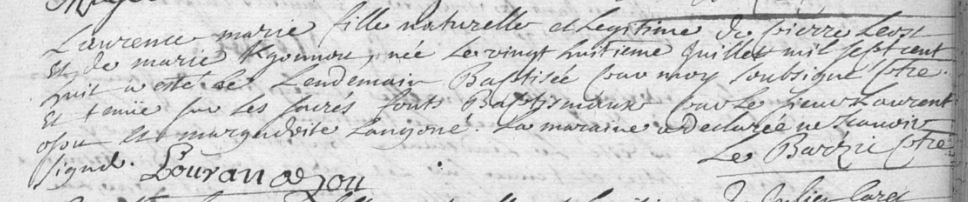 Laurence marie fille naturelle et Legitime de pierre Leon
et de marie Kgonnou, née Le vingt huitieme Juillet mil sept cent
huit a esté Le Lendemain Baptisée par moy soubsigné ptre
et tenue sur les sacrés fonts Baptismaux par Le sieur Laurent
ojou et margueritte Langoné. La maraine a Declarée ne scavoir
signé. Le Barzic ptre
Louran ojou
fille naturelle et de Julien